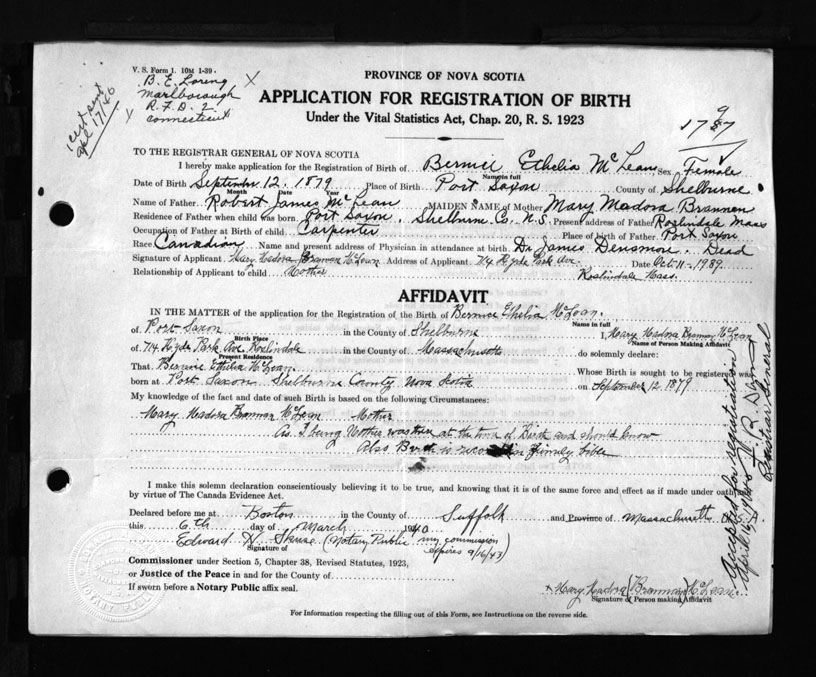 V. S. Form 1. 10M 1-39.
B. E. Loreng
Marlborough
R. F. D. 2
Connecticut
1 cert sent
Apl 17/40
PROVINCE OF NOVA SCOTIA
APPLICATION FOR REGISTRATION OF BIRTH
Under the Vital Statistics Act, Chap. 20, R. S. 1923
TO THE REGISTRAR GENERAL OF NOVA SCOTIA
I hereby make application for the Registration of Birth of Bernice Ethelia McLean Sex Female
Name in full
Date of Birth September 12. 1879 Place of Birth Port Saxon County of Shelburne
Month Date Year
Name of Father Robert James McLean MAIDEN NAME of Mother Mary Madora Brannen
Residence of Father when child was born Port Saxon. Shelburne Co. N.S. Present address of Father Roslindale Mass
Occupation of Father at Birth of Child Carpenter Place of Birth of Father Port Saxon
Race Canadian Name and present address of Physician in attendance at birth Dr James Densmore. Dead
Signature of Applicant Mary Madora Brannon McLean Address of Applicant 714 Hyde Park Ave. Date Oct-11-1939.
Relationship of Applicant to child Mother Roslindale Mass.
AFFIDAVIT
IN THE MATTER of the application for the Registration of the Birth of Bernice Ethelia McLean.
Name in full
of Port Saxon in the County of Shelburne I, Mary Madora Brannon McLean
Birth Place Name of Person Making Affidavit
of 714 Hyde Park Ave. Roslindale in the County of Massachusetts do solemnly declare:
Present Residence
That Bernice Ethelia McLean Whose Birth is sought to be registered was
born at Port Saxon Shelburne County Nova Scotia on September 12. 1879
My knowledge of the fact and date of such Birth is based on the following Circumstances:
Mary Madora Brannon McLean Mother
As I being Mother was then at the time of Birth and should know
Also Birth is in family bible
I make this solemn declaration conscientiously believing it to be true, and knowing that it is of the same force and effect as if made under oath
by virtue of The Canada Evidence Act.
Declared before me at Boston in the County of Suffolk and Province of Massachusetts
this 6th day of March 1940
Edward H. (Notary Public my commission
expires 9/16/43)
Signature of
Commissioner under Section 5, Chapter 38, Revised Statutes, 1923,
or Justice of the Peace in and for the County of
If sworn before a Notary Public affix seal.
Mary Madora (Brannon) McLean.
Signature of Person making Affidavit
For Information respecting the filling out of this Form, see Instructions on the reverse side.
Accepted for registration
April 1940
Registrar General